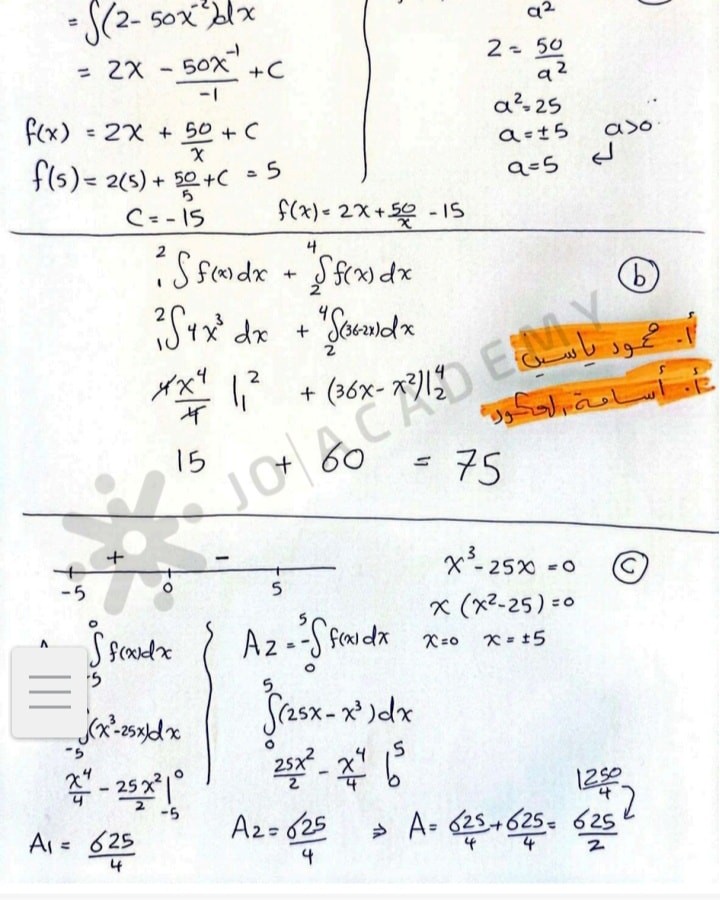 = ∫(2- 50x⁻²)dx
= 2x - 50x⁻¹/-1 + C
f(x) = 2x + 50/x + C
f(5) = 2(5) + 50/5 + C = 5
C = -15
f(x) = 2x + 50/x - 15
a²
2 = 50/a²
a² = 25
a = ±5 a>0
a = 5
ⓑ
₁²∫ f(x) dx + ₂⁴∫ f(x) dx
₁²∫ 4x³ dx + ₂⁴∫ (36-2x) dx
4x⁴/4 |₁² + (36x - x²)|₂⁴
15 + 60 = 75
أ. محمود ياسين
أ. أسامة العكور
JO|ACADEMY
ⓒ
x³ - 25x = 0
x (x² - 25) = 0
x = 0 x = ±5
+ -
-5 0 5
₋₅⁰∫ f(x) dx
₋₅∫(x³ - 25x) dx
x⁴/4 - 25x²/2 |₋₅⁰
A₁ = 625/4
A₂ = -₀⁵∫ f(x) dx
₀⁵∫ (25x - x³) dx
25x²/2 - x⁴/4 |₀⁵
A₂ = 625/4
⇒ A = 625/4 + 625/4 = 625/2
1250/4